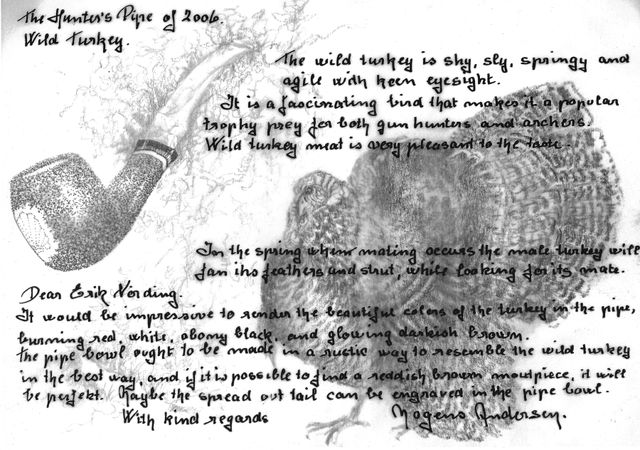 The Hunter's Pipe of 2006.
Wild Turkey.
The wild turkey is shy, sly, springy and
agile with keen eyesight.
It is a fascinating bird that makes it a popular
trophy prey for both gun hunters and archers.
Wild turkey meat is very pleasant to the taste.
In the spring when mating occurs the male turkey will
fan its feathers and strut, while looking for its mate.
Dear Erik Nørding.
It would be impressive to render the beautiful colors of the turkey in the pipe,
burning red, white, ebony black, and glowing darkish brown.
The pipe bowl ought to be made in a rustic way to resemble the wild turkey
in the best way, and if it is possible to find a reddish brown moutpiece, it will
be perfekt. Maybe the spread out tail can be engraved in the pipe bowl.
With kind regards
Mogens Andersen.